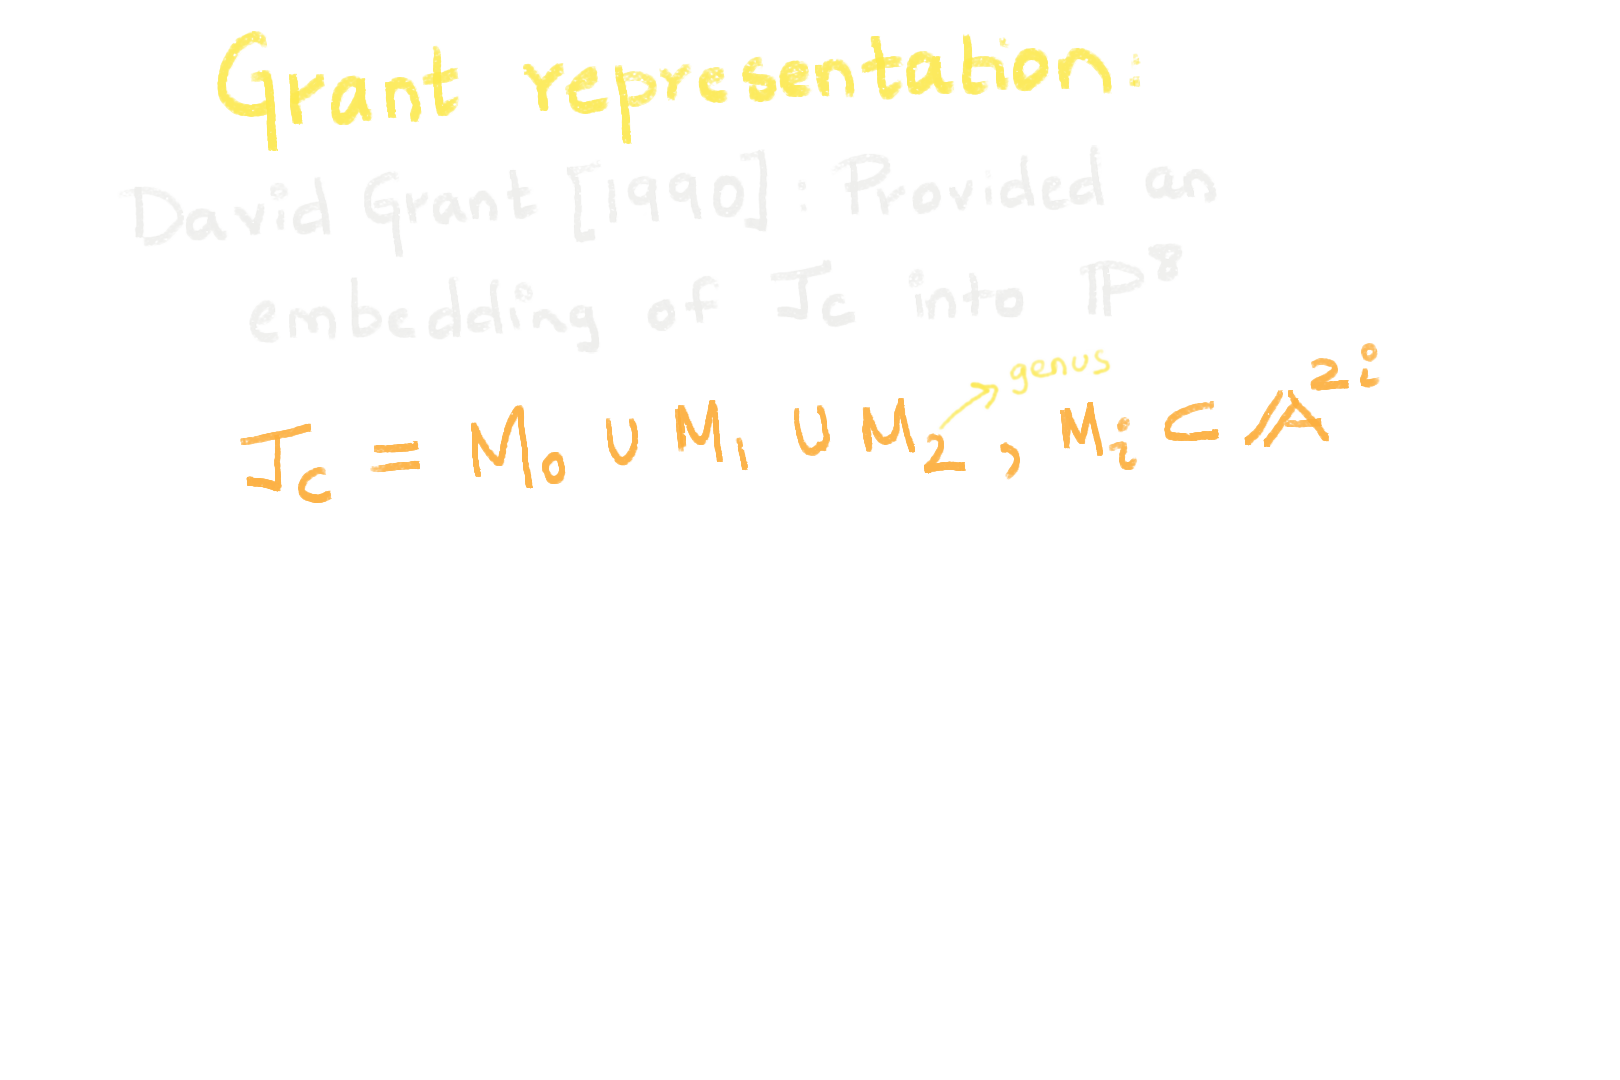 Grant representation:
David Grant [1990]: Provided an
embedding of J_C into ℙ^8
genus
J_C = M_0 ∪ M_1 ∪ M_2, M_i ⊂ 𝔸^{2i}